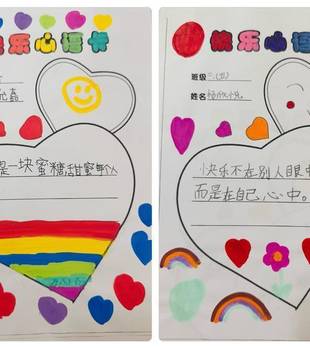 乐心语卡
是一块蜜糖甜蜜每个人
快乐心语
班级
姓名
快乐不在别人眼中
而是在自己心中。